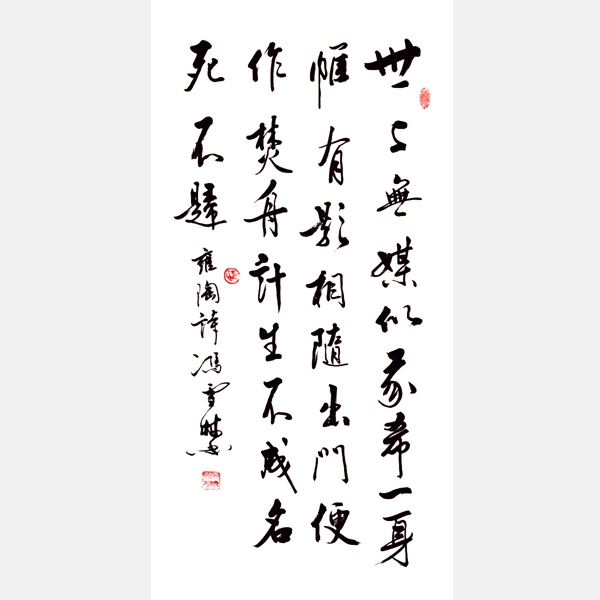 世上無媒似我希一身
惟有影相隨出門便
作焚舟計生不成名
死不歸
雍陶詩馮雪林书